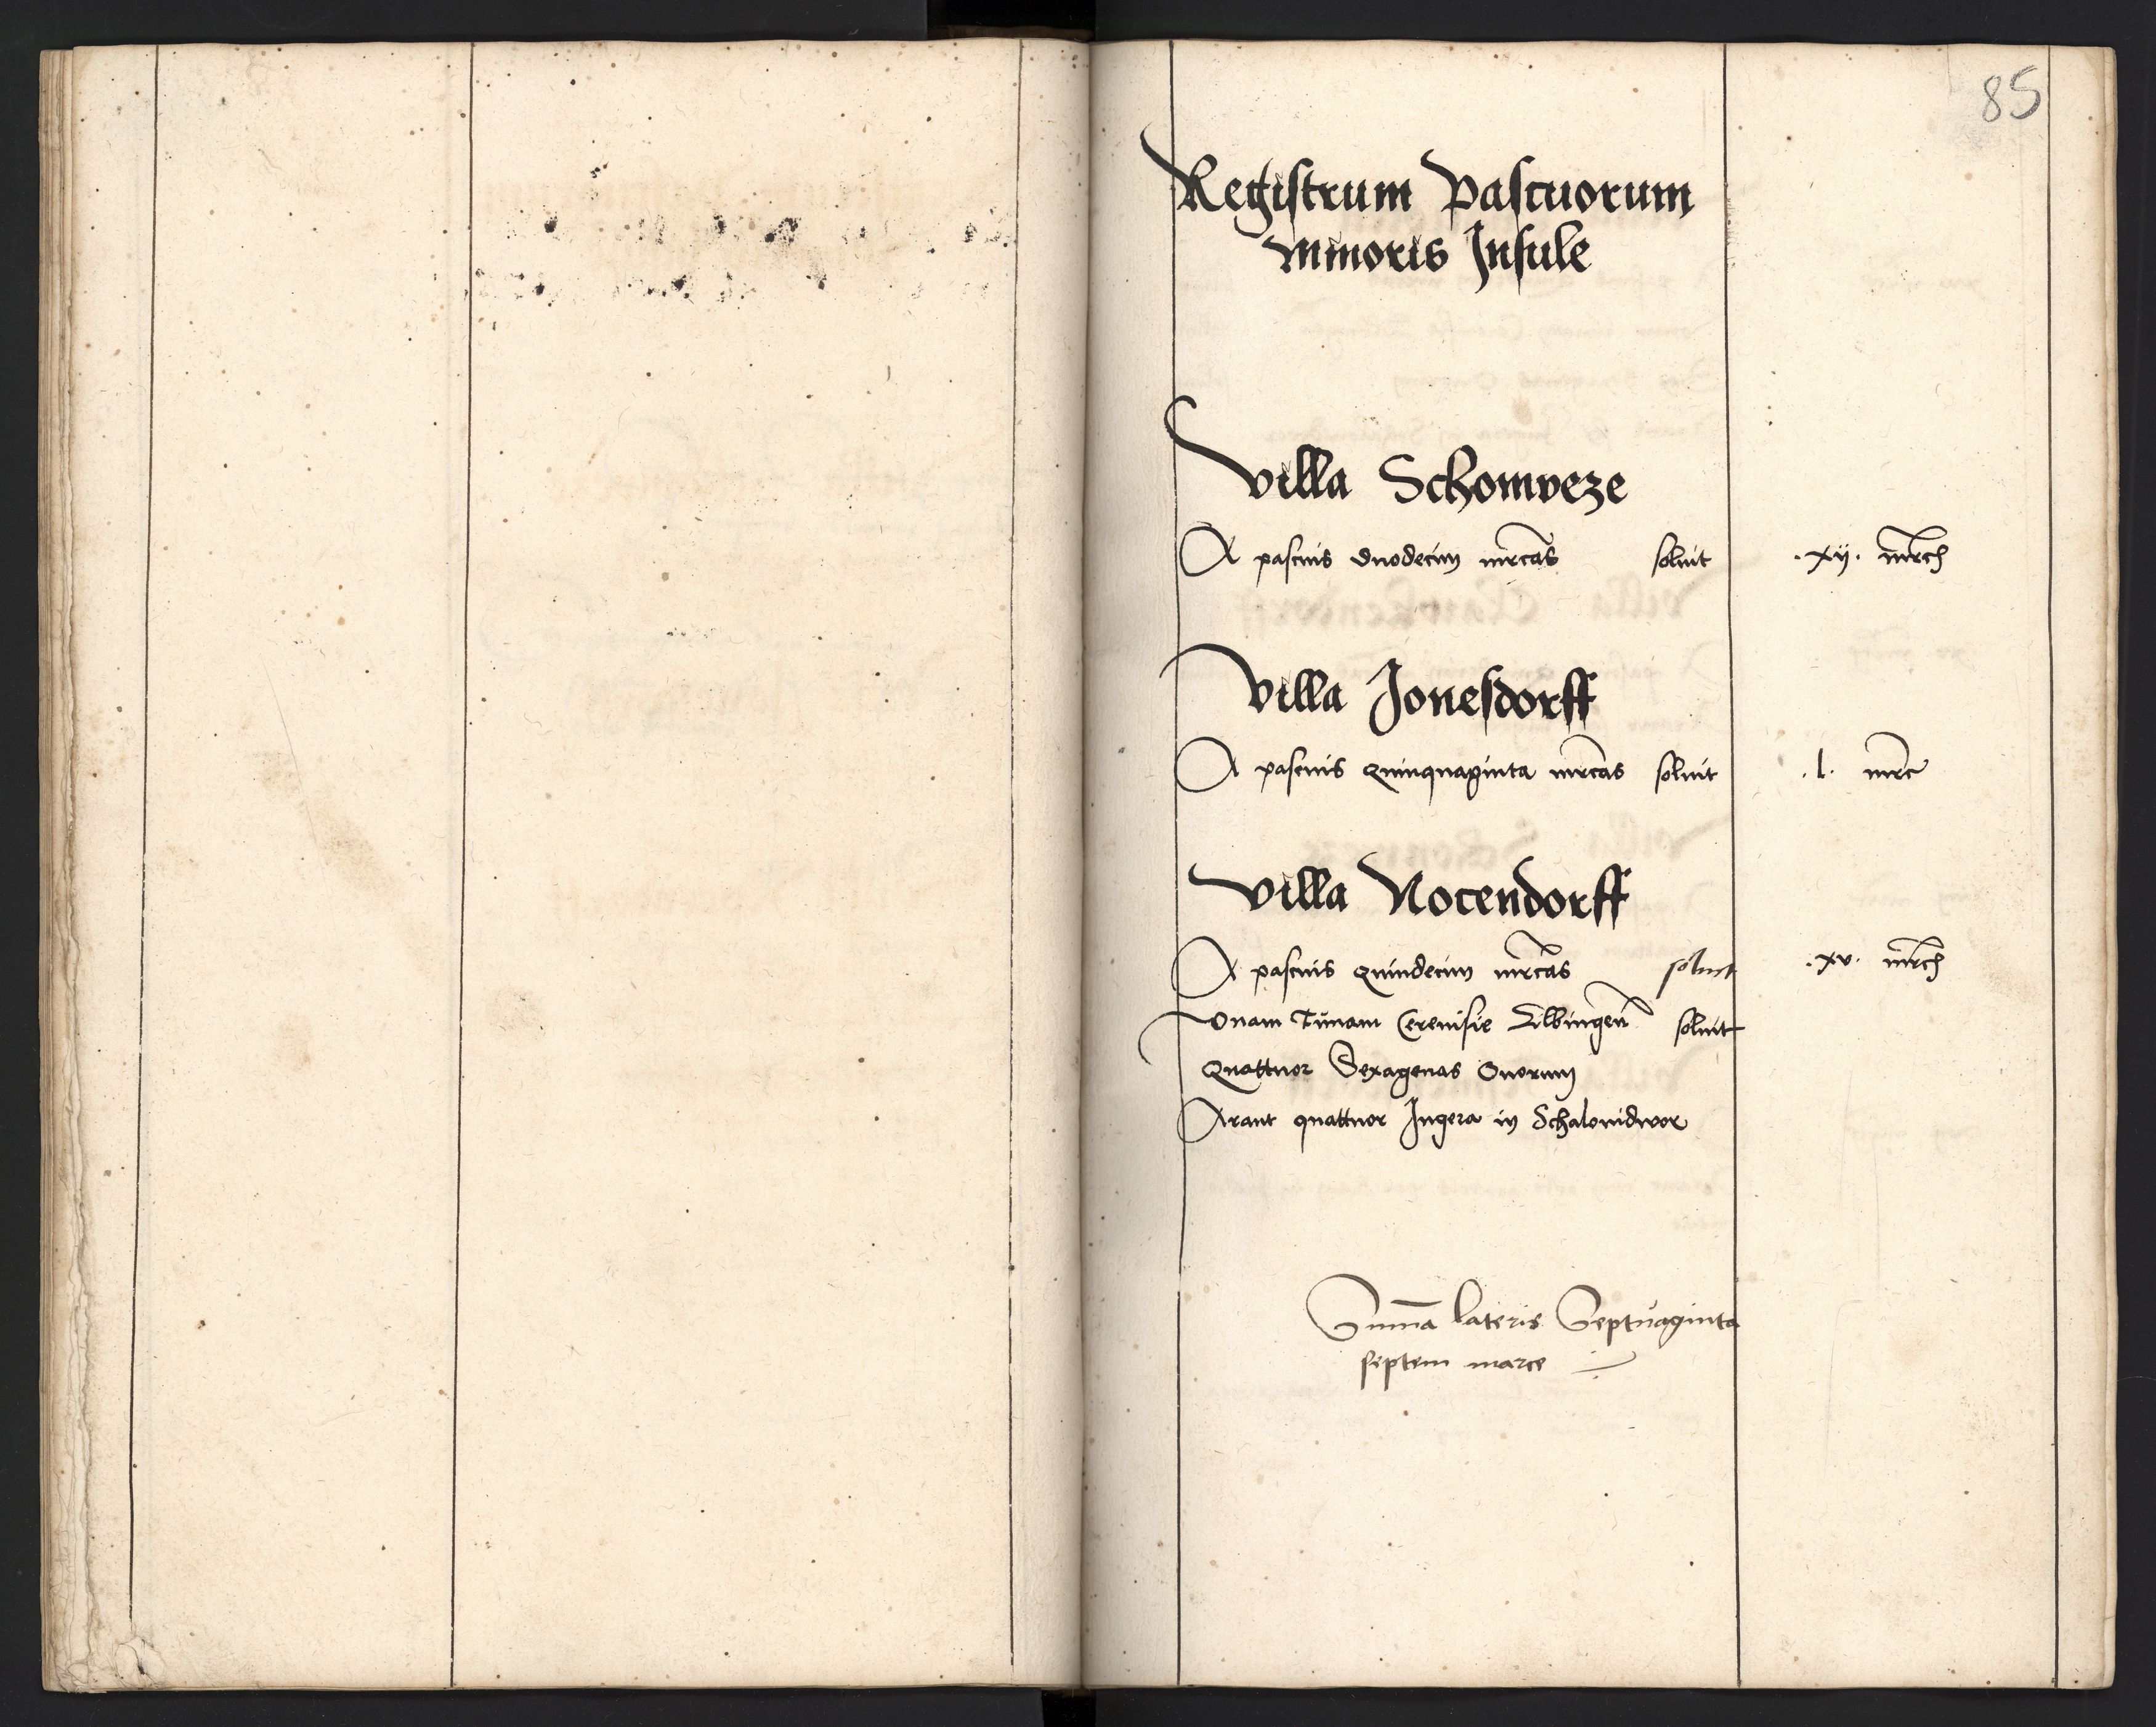 85
Registrum Pascuorum
Minoris Insule
Villa Schomveze
A pascuis duodecim mrcas soluit .xij. mrch
Villa Jonesdorff
A pascuis quinquaginta mrcas soluit .l. mrc
Villa Nocendorff
A pascuis quindecim mrcas soluit .xv. mrch
Vnam Tunam Cereuisie Elbingen soluit
Quattuor Sexagenas Ouorum
Arant quattuor Jugera in Schalouidwor
Summa lateris Septuaginta
septem marce